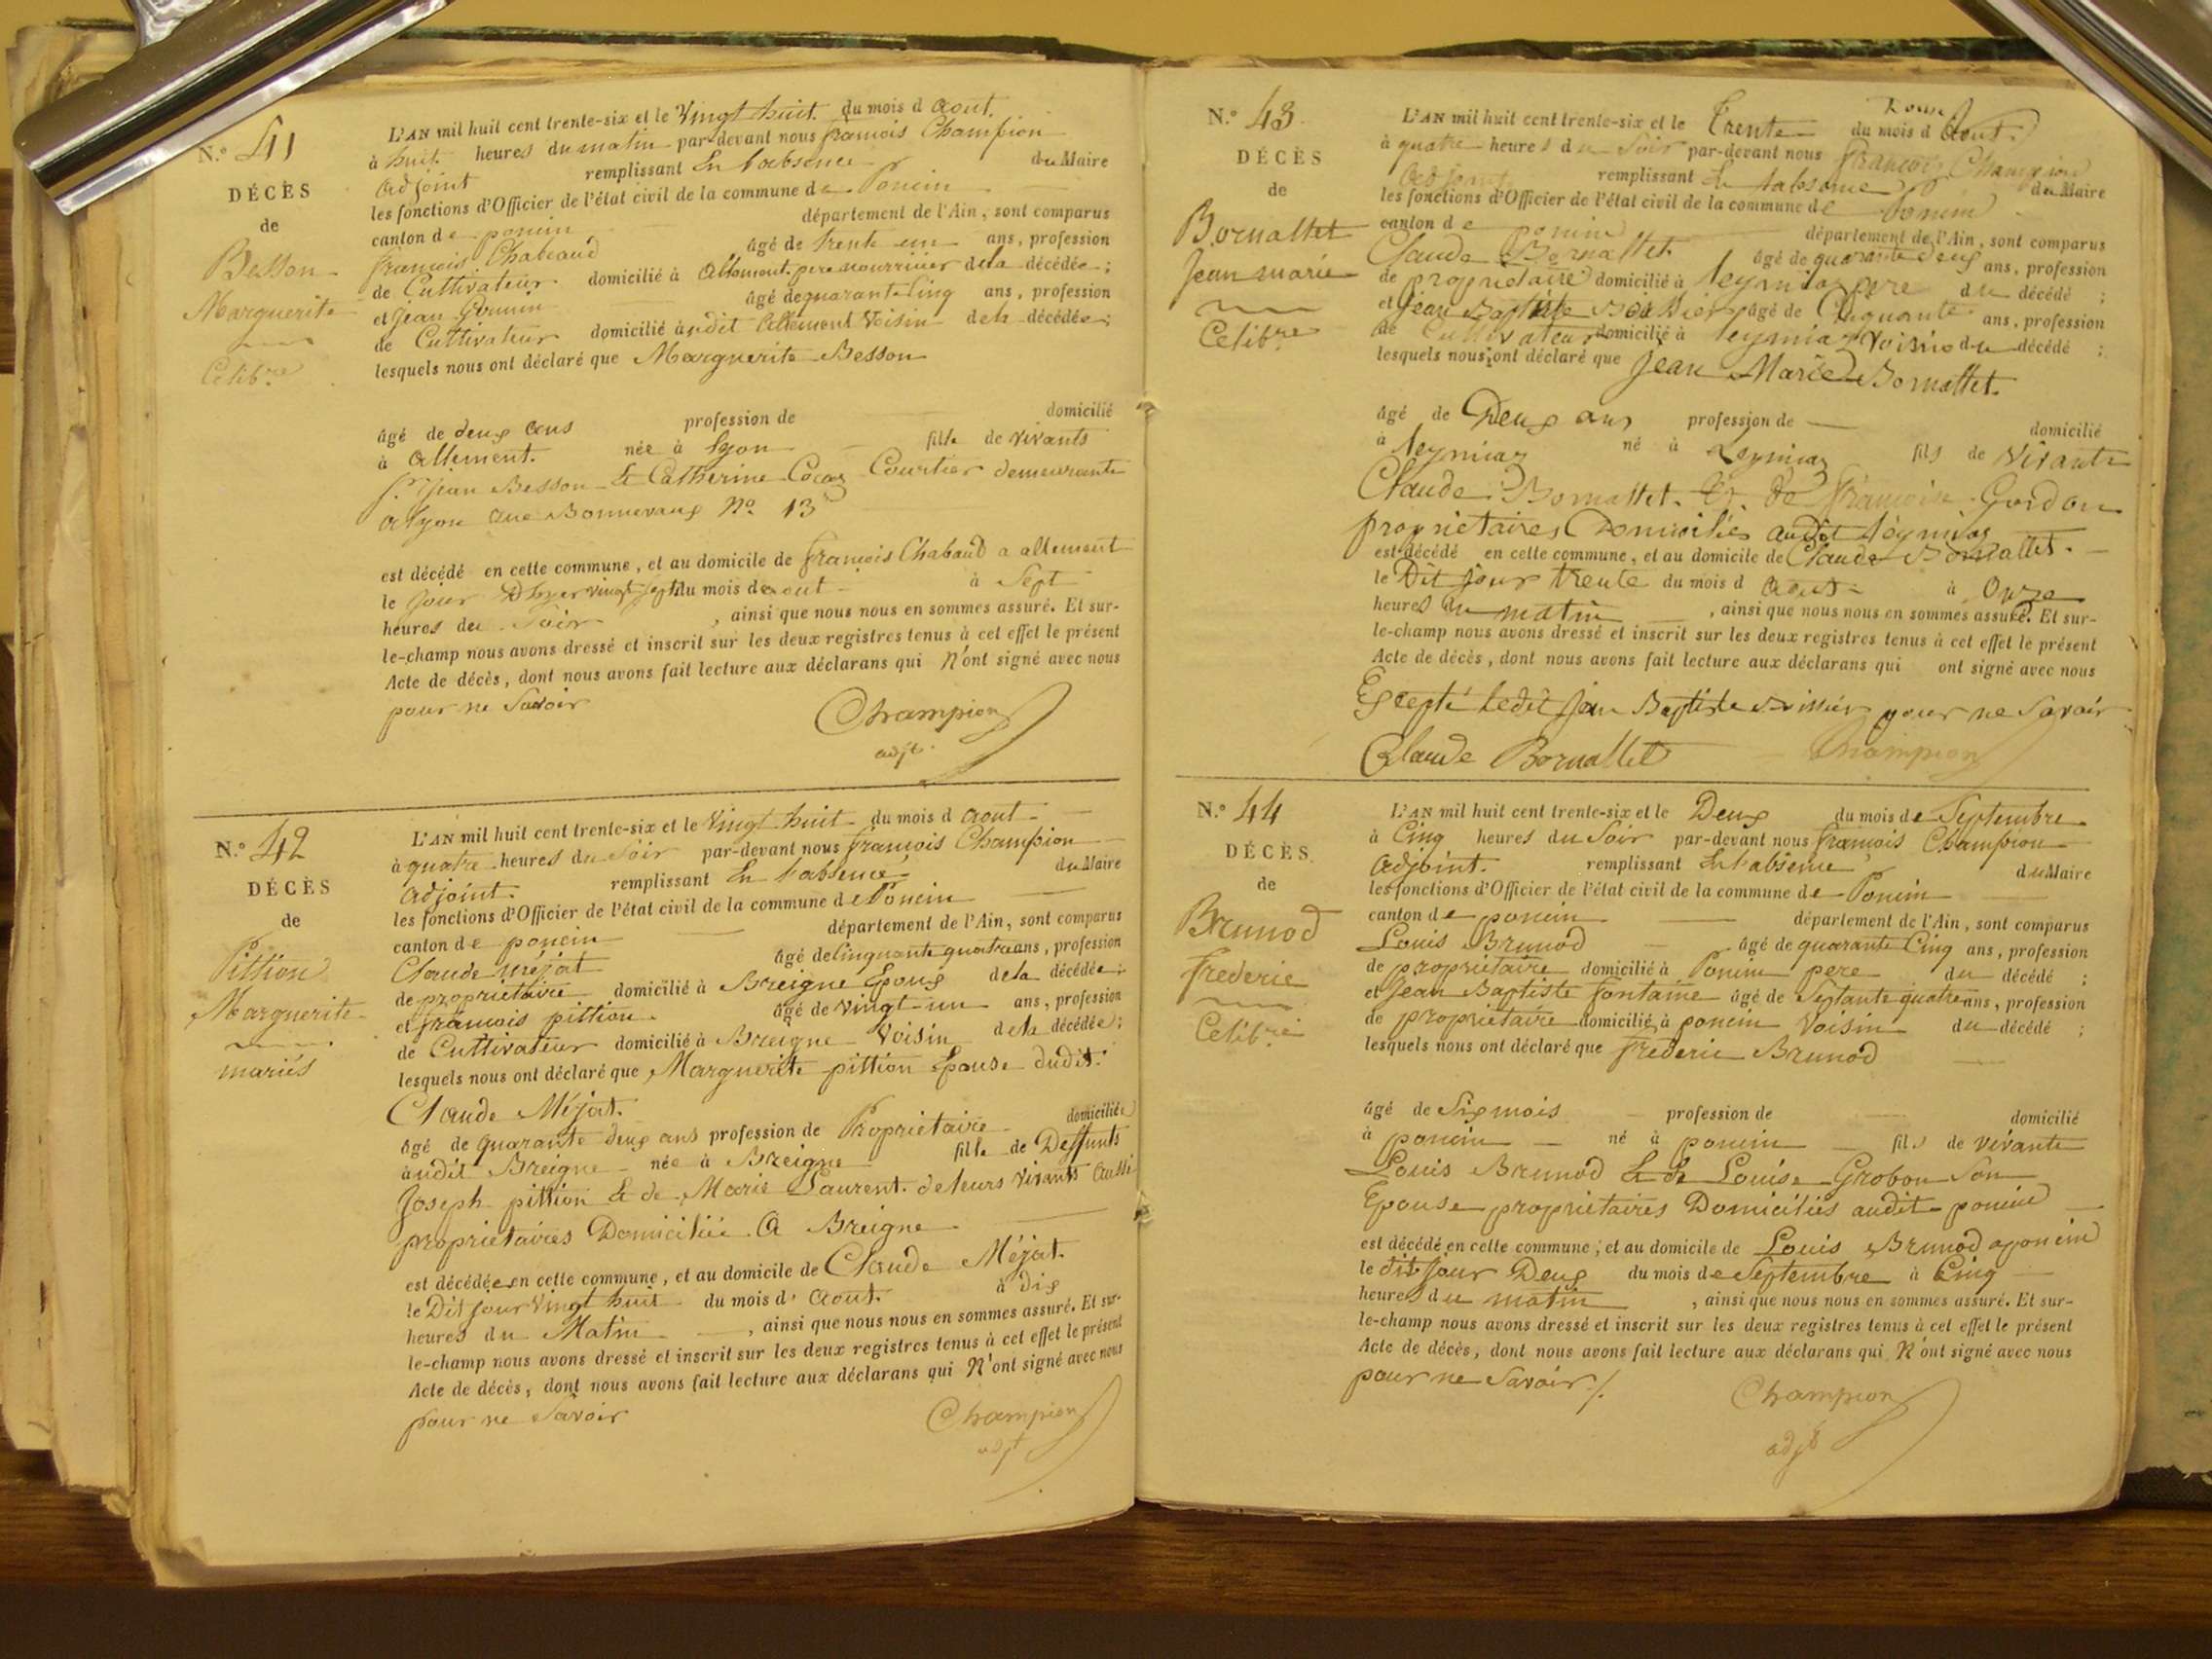 N.° 41
DÉCÈS
de
Besson
Marguerite
Célib.re
L'AN mil huit cent trente-six et le Vingt huit du mois d aout
à huit heures du matin par-devant nous françois Champion
adjoint remplissant En l'absence du Maire
les fonctions d'Officier de l'état civil de la commune de Poncin
canton de poncin département de l'Ain, sont comparus
françois Chabaud âgé de trente un ans, profession
de Cultivateur domicilié à allement pere nourricier de la décédée;
et jean âgé de quarante Cinq ans, profession
de Cultivateur domicilié audit allement Voisin de la décédée;
lesquels nous ont déclaré que Marguerite Besson
âgé de deux ans profession de domicilié
à allement. née à lyon fille de vivants
s.r jean Besson Et Catherine Courtier demeurante
a lyon rue Bonnevaux N° 13
est décédé en cette commune, et au domicile de françois Chabaud a allement
le jour D'hyer vingt sept du mois d aout à Sept
heures du Soir, ainsi que nous nous en sommes assuré. Et sur-
le-champ nous avons dressé et inscrit sur les deux registres tenus à cet effet le présent
Acte de décès, dont nous avons fait lecture aux déclarans qui N'ont signé avec nous
pour ne Savoir
Champion
adjt.
N.° 42
DÉCÈS
de
Pittion
Marguerite
mariés
L'AN mil huit cent trente-six et le Vingt huit du mois d aout
à quatre heures du Soir par-devant nous françois Champion
adjoint. remplissant En l'absence du Maire
les fonctions d'Officier de l'état civil de la commune de Poncin
canton de poncin département de l'Ain, sont comparus
Claude méjat âgé de Cinquante quatre ans, profession
de propriétaire domicilié à Breigne Epoux de la décédée;
et françois pittion âgé de vingt-un ans, profession
de Cultivateur domicilié à Breigne Voisin de la décédée;
lesquels nous ont déclaré que Marguerite pittion Epouse dudit
Claude Méjat.
âgé de quarante deux ans profession de Propriétaire domiciliée
audit Breigne née à Breigne fille de Deffunts
Joseph pittion & de Marie Laurent. de leurs vivants aussi
propriétaires Domiciliée A Breigne
est décédée en cette commune, et au domicile de Claude Méjat.
le Dit jour Vingt huit du mois d' aout. à dix
heures du Matin, ainsi que nous nous en sommes assuré. Et sur-
le-champ nous avons dressé et inscrit sur les deux registres tenus à cet effet le présent
Acte de décès, dont nous avons fait lecture aux déclarans qui N'ont signé avec nous
pour ne Savoir
Champion
adjt
N.° 43
DÉCÈS
de
Bornattet
Jean marie
Celibre
L'AN mil huit cent trente-six et le Trente du mois d Aout.
à quatre heures du Soir par-devant nous françois Champion
adjoint remplissant En l'absence du Maire
les fonctions d'Officier de l'état civil de la commune de Poncin
canton de poncin département de l'Ain, sont comparus
Claude Bornattet. âgé de quarante deux ans, profession
de propriétaire domicilié à leymiaz pere du décédé;
et Jean Baptiste âgé de Cinquante ans, profession
de Cultivateur domicilié à leymiaz Voisin du décédé;
lesquels nous ont déclaré que Jean Marie Bornattet.
âgé de Deux ans profession de domicilié
à leymiaz né à Leymiaz fils de vivants
Claude Bornattet. Et De françoise Gordon
propriétaires Domiciliés audit leymiaz
est décédé en cette commune, et au domicile de Claude Bornattet.
le Dit jour trente du mois d aout à Onze
heures du matin, ainsi que nous nous en sommes assuré. Et sur-
le-champ nous avons dressé et inscrit sur les deux registres tenus à cet effet le présent
Acte de décès, dont nous avons fait lecture aux déclarans qui ont signé avec nous
Excepté ledit jean Baptiste pour ne Savoir
Claude Bornattet Champion
N.° 44
DÉCÈS
de
Brunod
frederic
Celib.re
L'AN mil huit cent trente-six et le Deux du mois de Septembre
à Cinq heures du Soir par-devant nous françois Champion
adjoint. remplissant En l'absence du Maire
les fonctions d'Officier de l'état civil de la commune de Poncin
canton de poncin département de l'Ain, sont comparus
Louis Brunod âgé de quarante Cinq ans, profession
de propriétaire domicilié à Poncin pere du décédé;
et Jean Baptiste fontaine âgé de Septante quatre ans, profession
de propriétaire domicilié à poncin Voisin du décédé;
lesquels nous ont déclaré que frederic Brunod
âgé de Six mois profession de domicilié
à poncin né à poncin fils de vivants
Louis Brunod & de Louise Grobon Son
Epouse propriétaires Domiciliés audit poncin
est décédé en cette commune; et au domicile de Louis Brunod a poncin
le dit jour Deux du mois de Septembre à Cinq
heures du matin, ainsi que nous nous en sommes assuré. Et sur-
le-champ nous avons dressé et inscrit sur les deux registres tenus à cet effet le présent
Acte de décès, dont nous avons fait lecture aux déclarans qui N'ont signé avec nous
pour ne Savoir ./.
Champion
adjt